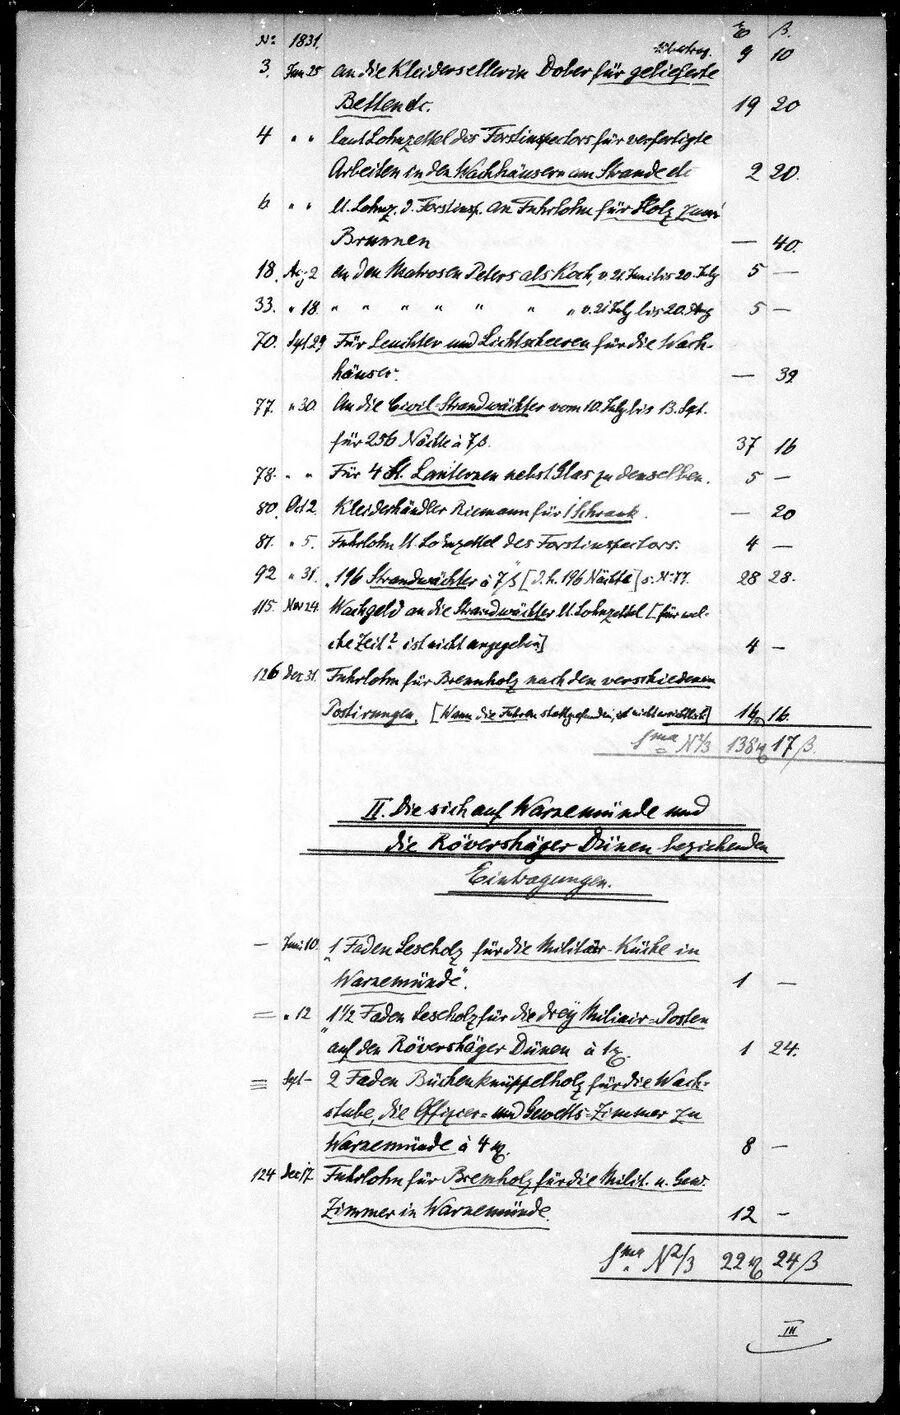 No 1831. ß.
Übertrag. 9 10
3. Jun 25 an die Kleidersellerin Dober für gelieferte
Betten etc. 19 20
4 " " laut Lohnzettel des Forstinspectors für verfertigte
Arbeiten in den Wachhäusern am Strande etc 2 20.
6 " " lt. Lohnz. d. Forstinsp. an Fuhrlohn für Holz zum
Brunnen — 40.
18. Aug 2 an den Matrosen Peters als Koch, v. 21. Juni bis 20. July 5 —
33. " 18. " " " " " " " v. 21 July bis 20. Aug 5 —
70. Spt 29 Für Leuchter und Lichtscheeren für die Wach-
häuser. — 32
77. " 30. An die Civil-Strandwächter vom 10. July bis 13. Spt.
für 256 Nächte à 7 ß. 37 16
78. " " Für 4 St. Lanternen nebst Glas zu denselben. 5 —
80. Oct 2. Kleiderhändler Riemann für 1 Schrank. — 20
81. " 5. Fuhrlohn lt. Lohnzettel des Forstinspectors. 4 —
92 " 31. "196 Strandwächter à 7 ß" [d. h. 196 Nächte] s. No 77. 28 28.
115. Nov 24. Wachgeld an die Strandwächter lt. Lohnzettel [für wel-
che Zeit? ist nicht angegeben] 4 —
126 Dec 31. Fuhrlohn für Brennholz nach den verschiedenen
Postirungen. [Wann die Fuhren stattgefunden, ist nicht ersichtlich] 16 16.
Sma No 1/3 138 17 ß.
II. Die sich auf Warnemünde und
die Rövershäger Dünen beziehenden
Eintragungen.
— Juni 10. "1 Faden Leseholz für die Militär-Küche in
Warnemünde". 1 —
= " 12 "1 1/2 Faden Leseholz für die drey Militair-Posten
auf den Rövershäger Dünen à 1 1 24.
≡ Spt — 2 Faden Büchenknüppelholz für die Wach-
stube, die Officer- und Gewetts-Zimmer zu
Warnemünde à 4 8 —
124 Dec 17. Fuhrlohn für Brennholz für die Milit. u. Gew.
Zimmer in Warnemünde. 12 —
Sma No 2/3 22 24 ß
III